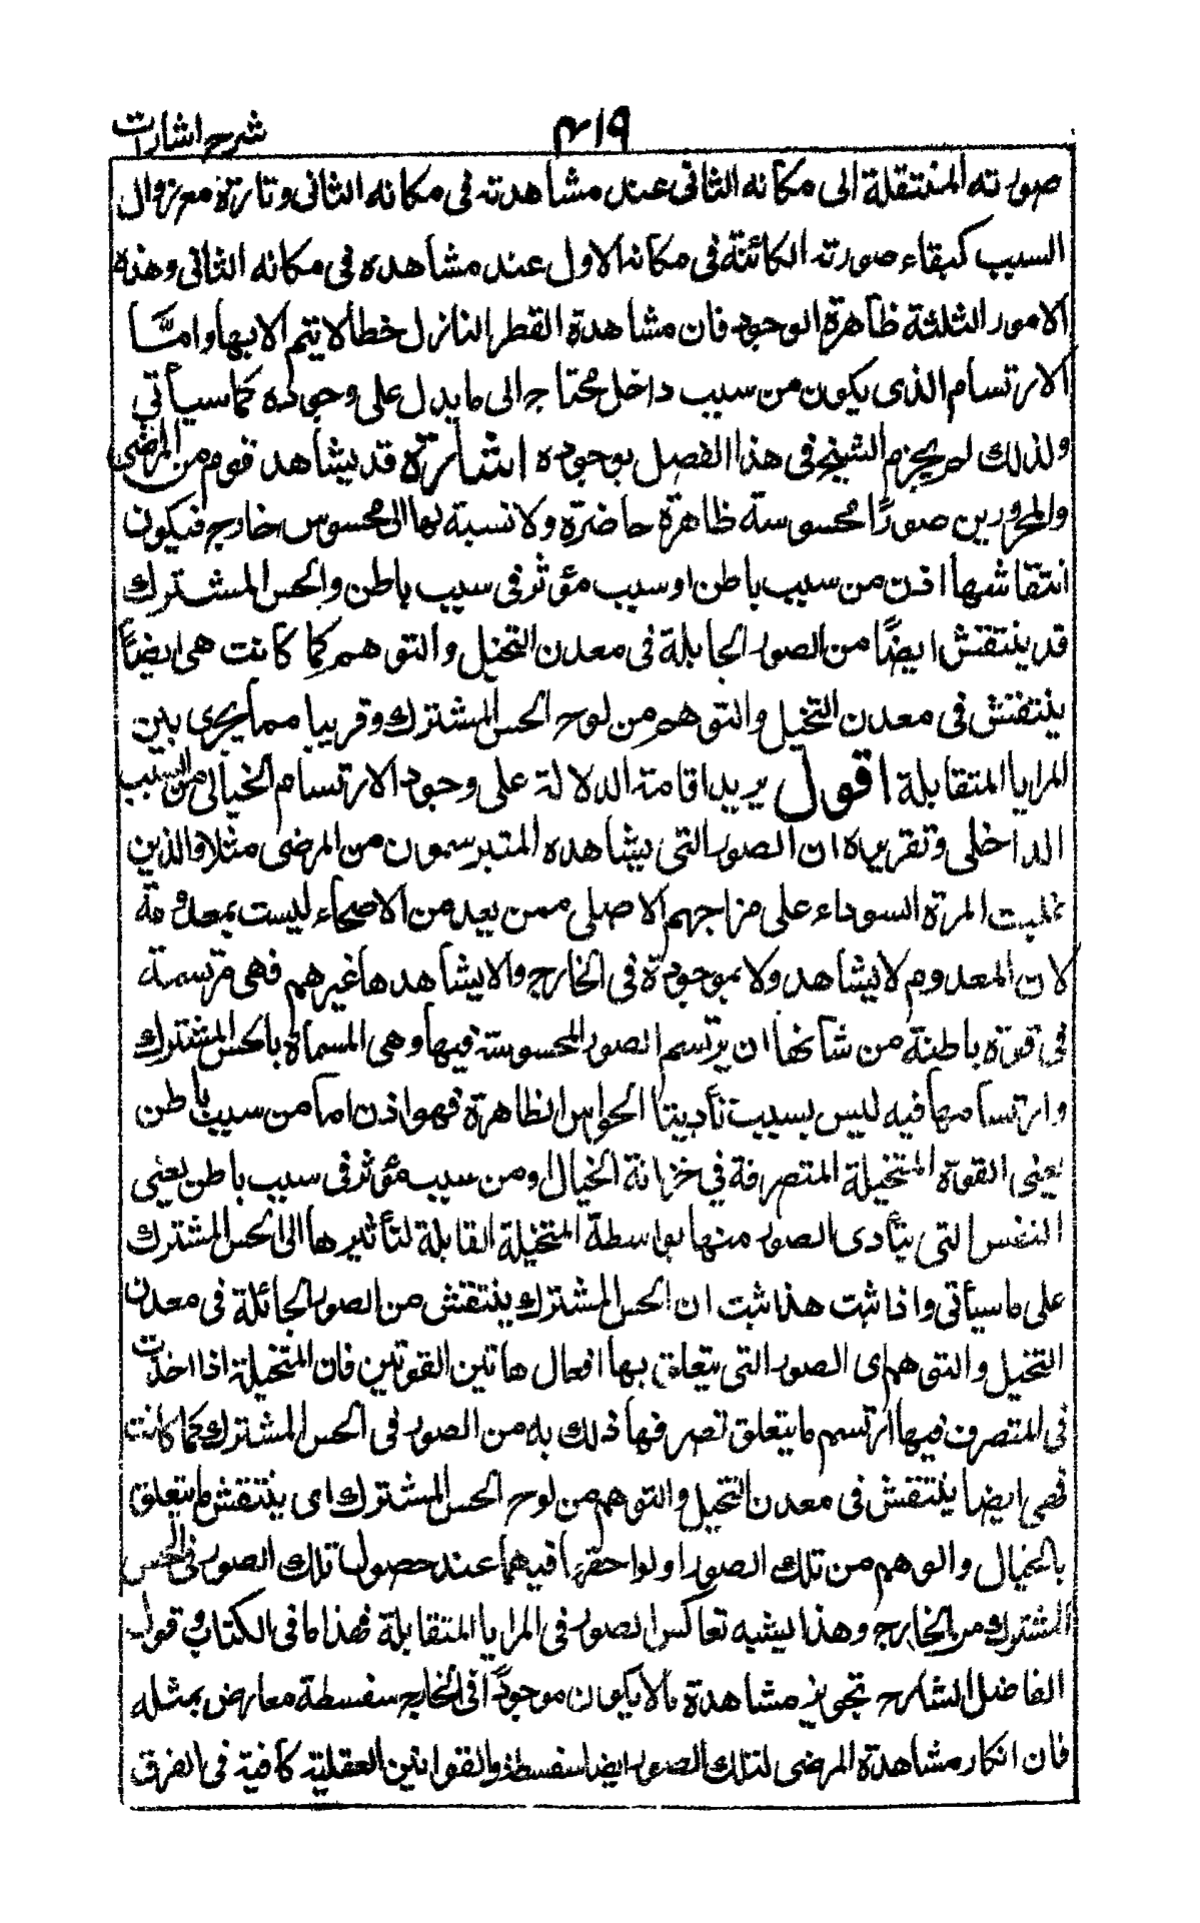 شرح اشارات
۴۱۹
صورته المنتقلة الى مكانه الثانى عند مشاهدته فى مكانه الثانى وتارة مع زوال
السبب كبقاء صورته الكائنة فى مكانه الاول عند مشاهده فى مكانه الثانى وهذه
الامور الثلثة ظاهرة الوجود فان مشاهدة القطر النازل خطا لا يتم الا بها وامّا
الارتسام الذى يكون من سبب داخل محتاج الى ما يدل على وجوده كما سيأتي
ولذلك لم يجزم الشيخ فى هذا الفصل بوجوده اشارة قد يشاهد قوم من المرضى
والمحرورين صورًا محسوسة ظاهرة حاضرة ولا نسبة لها الى محسوس خارج فيكون
انتقاشها اذن من سبب باطن او سبب مؤثر فى سبب باطن والحس المشترك
قد ينتقش ايضًا من الصور الجايلة فى معدن التخيل والتوهم كما كانت هى ايضًا
ينتقش فى معدن التخيل والتوهم من لوح الحس المشترك وقريبا مما يجرى بين
المرايا المتقابلة اقول يريد اقامة الدلالة على وجود الارتسام الخيالى من السبب
الداخلى وتقريره ان الصور التى يشاهده المتبرسمون من المرضى مثلا والذين
غلبت المرة السوداء على مزاجهم الاصلى ممن يعد من الاصحاء ليست بمعدومة
لان المعدوم لا يشاهد ولا بموجودة فى الخارج والا يشاهدها غيرهم فهى مرتسمة
فى قوة باطنة من شانها ان يرتسم الصور المحسوسة فيها وهى المسماة بالحس المشترك
وارتسامها فيه ليس بسبب تأديتا الحواس الظاهرة فهو اذن اما من سبب باطن
يعنى القوة المتخيلة المتصرفة في خزانة الخيال او من سبب مؤثر فى سبب باطن يعنى
النفس التى يتأدى الصور منها بواسطة المتخيلة القابلة لتأثيرها الى الحس المشترك
على ما سيأتى واذا ثبت هذا ثبت ان الحس المشترك ينتقش من الصور الجائلة فى معدن
التخيل والتوهم اى الصور التى يتعلق بها افعال هاتين القوتين فان المتخيلة اذا اخذت
فى المتصرف فيها ارتسم ما يتعلق تصرفها ذلك به من الصور فى الحس المشترك كما كانت
فهى ايضا ينتقش فى معدن التخيل والتوهم من لوح الحس المشترك اى ينتقش ما يتعلق
بالخيال والوهم من تلك الصور او لواحقها فيهما عند حصول تلك الصور فى الحس
المشترك من الخارج وهذا يشبه تعاكس الصور فى المرايا المتقابلة فهذا ما فى الكتاب وقول
الفاضل الشارح تجويز مشاهدة ما لا يكون موجودًا فى الخارج سفسطة معارض بمثله
فان انكار مشاهدة المرضى لتلك الصور ايضا سفسطة والقوانين العقلية كافية فى الفرق